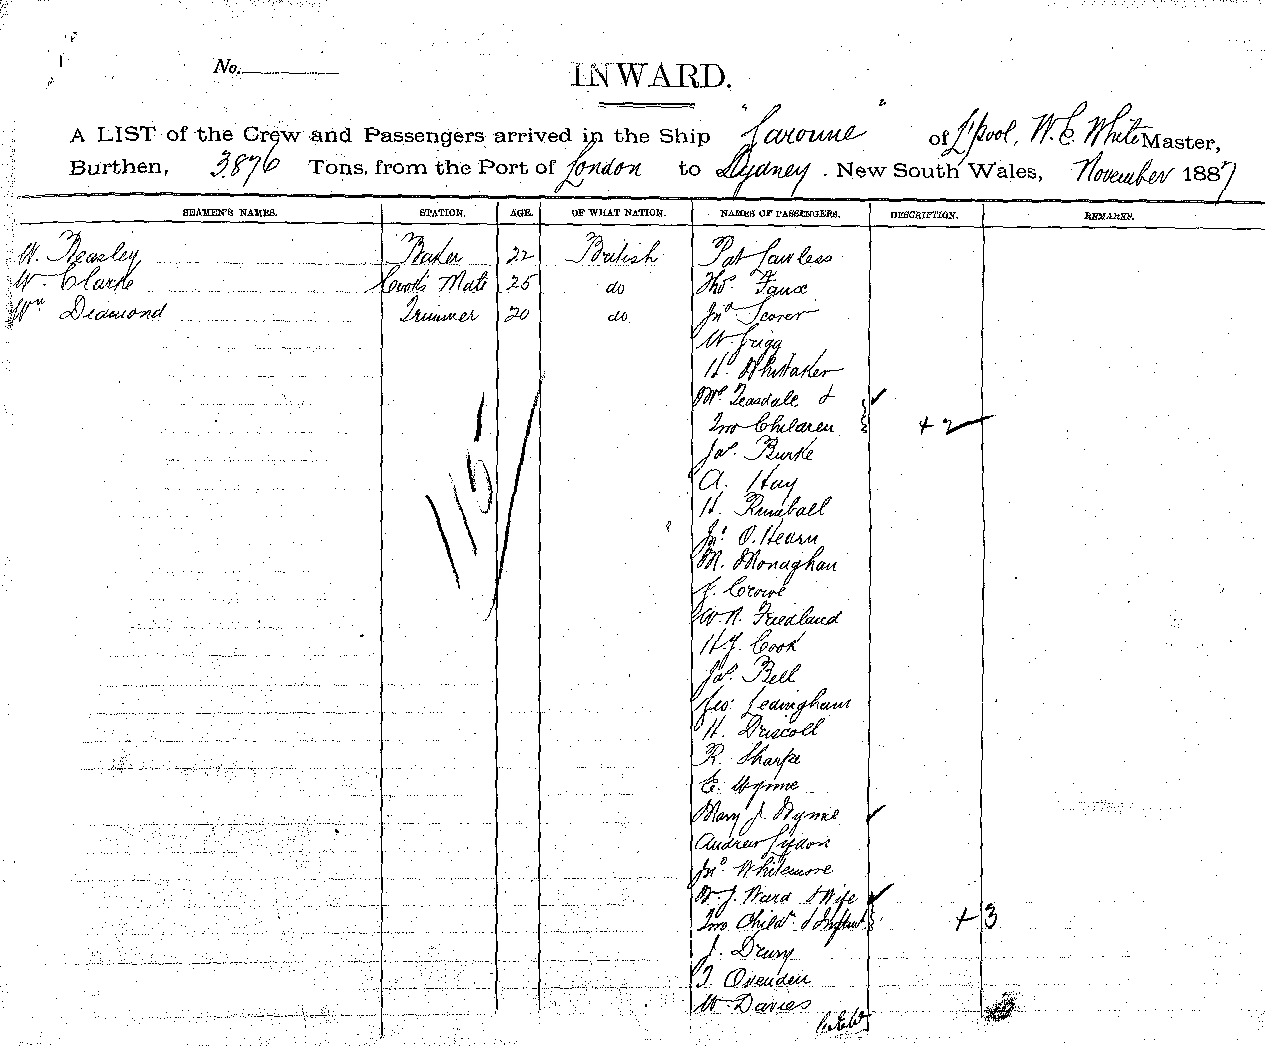 No.
INWARD.
A LIST of the Crew and Passengers arrived in the Ship "Garonne" of L'pool, W. E. White Master,
Burthen, 3876 Tons, from the Port of London to Sydney. New South Wales, November 1887
SEAMEN'S NAMES. STATION. AGE. OF WHAT NATION. NAMES OF PASSENGERS. DESCRIPTION. REMARKS.
W. Beasley Baker 22 British Pat Lawless
W. Clarke Cook's Mate 25 do Thos. Faux
Wm Diamond Trimmer 20 do Jno Scorer
W. Grigg
H. Whittaker
Teasdale &
Two Children + 2
Jas. Burke
A. Hay
H. Kimball
115
Jno. O.Hearn
M. Monaghan
J. Crowe
W. A. Friedland
H. J. Cook
Jas. Bell
Geo. Ledingham
H. Driscoll
R. Sharpe
E. Wynne
Mary J. Wynne
Andrew Lydon
Jno Whitemore
W. J. Ward & Wife
Two Child. & Infant + 3
J. Drury
T. Ovenden
W. Davies